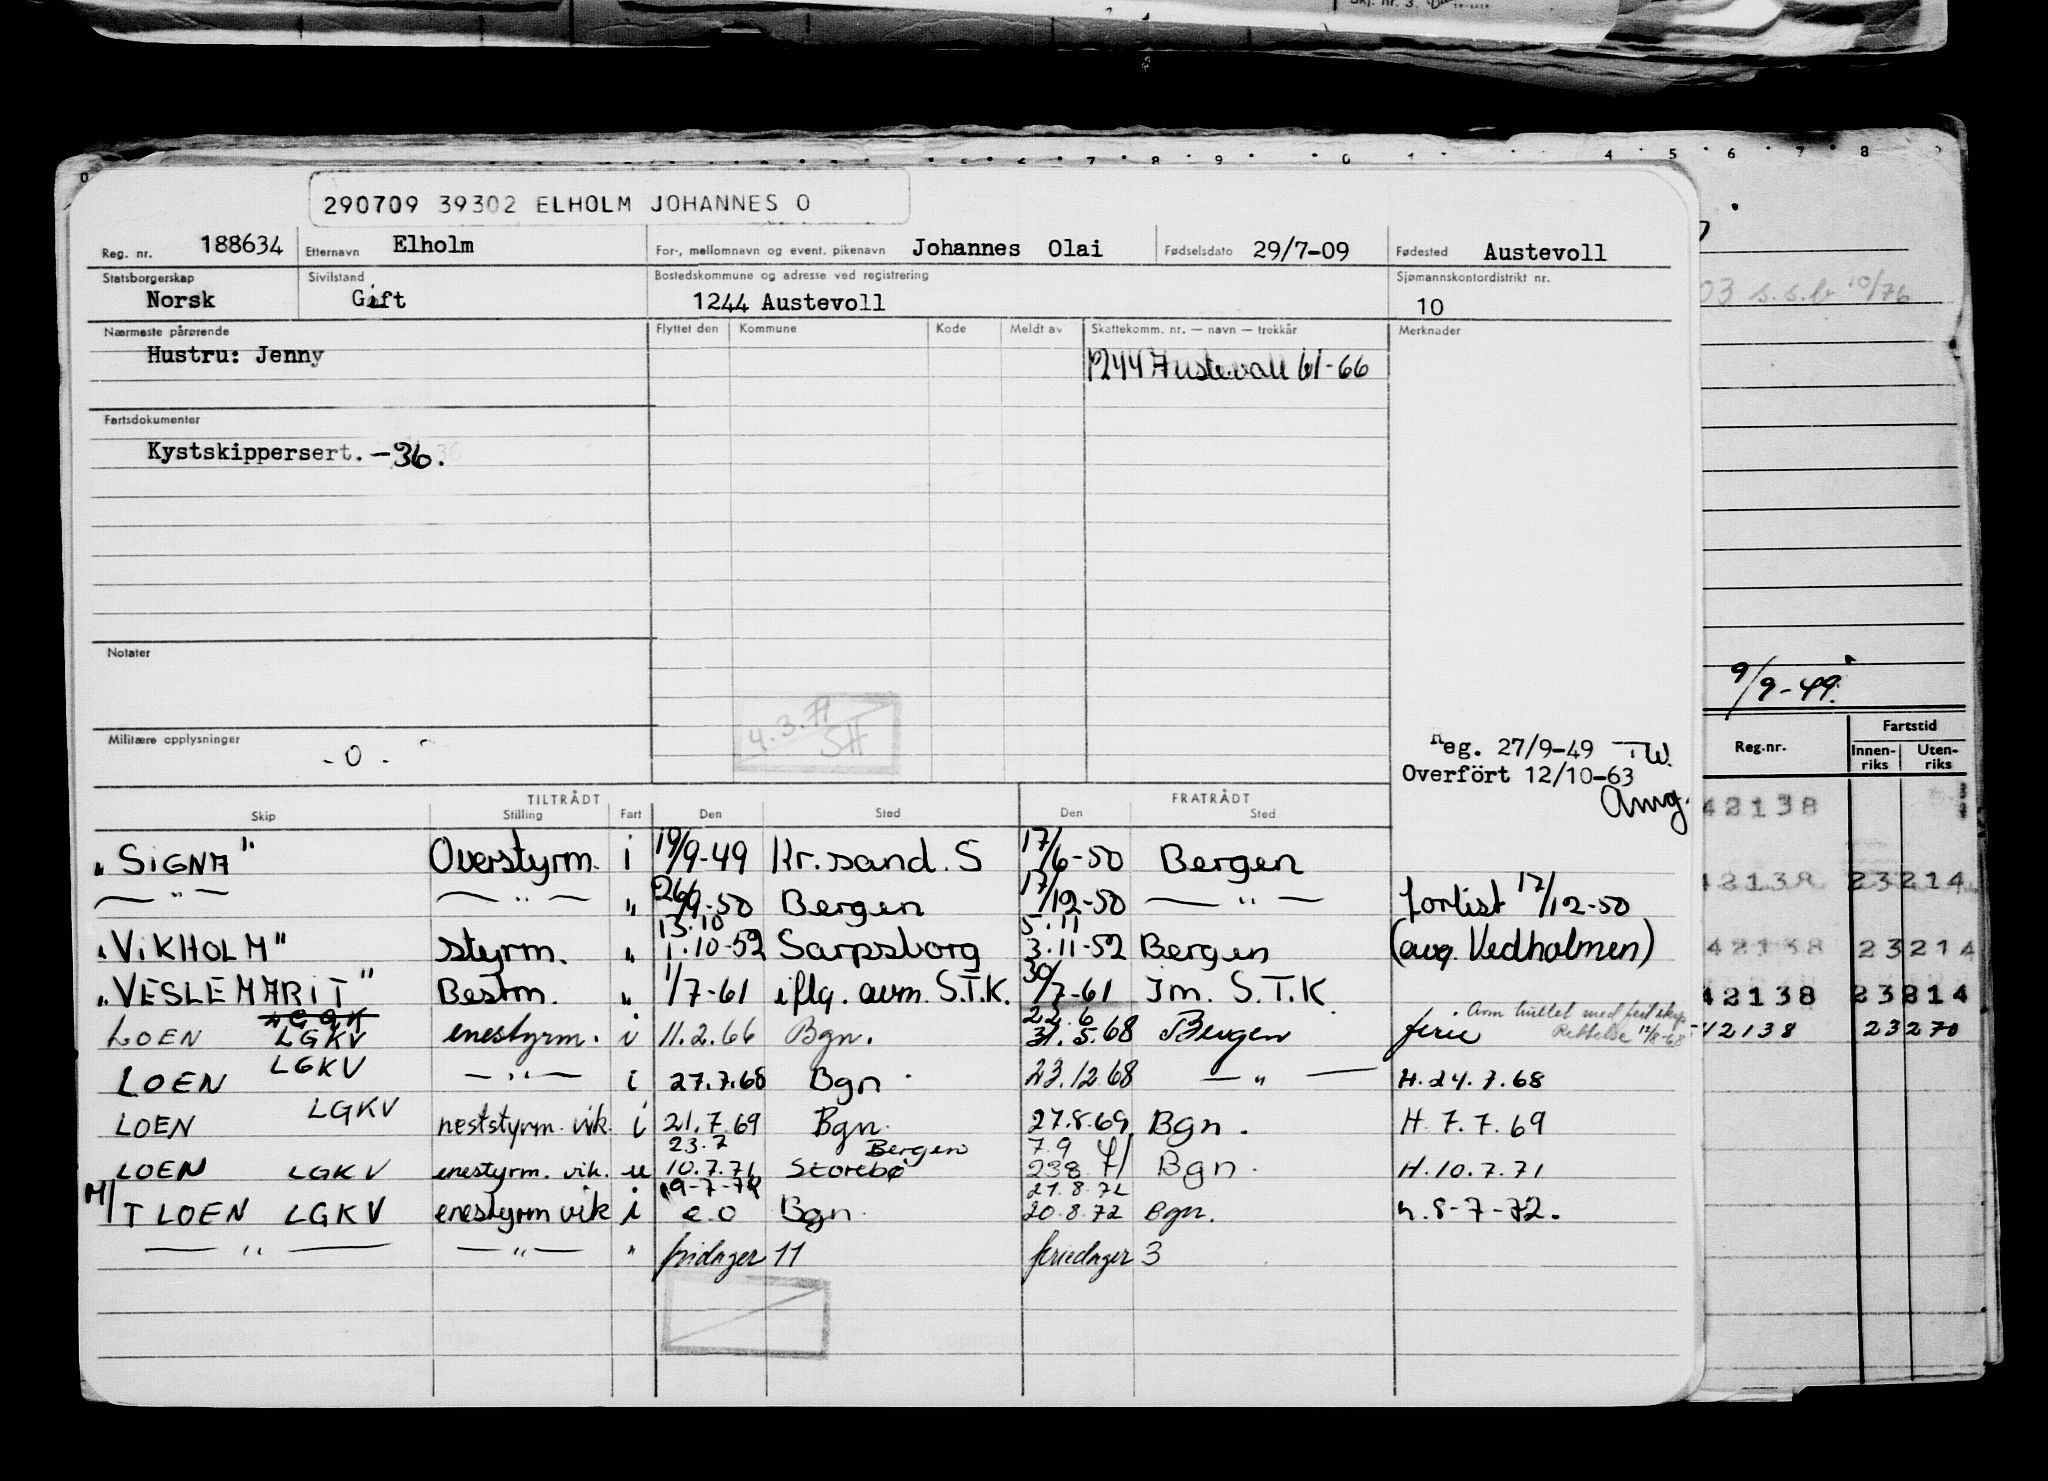 290709 39302 ELHOLM JOHANNES O
Reg. nr. 188634 Etternavn Elholm For-, mellomnavn og event. pikenavn Johannes Olai Fødselsdato 29/7-09 Fødested Austevoll
Statsborgerskap Sivilstand Bostedskommune og adresse ved registrering Sjømannskontordistrikt nr.
Norsk Gift 1244 Austevoll 10
Nærmeste pårørende Flyttet den Kommune Kode Meldt av Skattekomm. nr. — navn — trekkår Merknader
Hustru: Jenny 1244 Austevoll 61-66
Fartsdokumenter
Kystskippersert. -36.
Notater
4.3.71 SH
Militære opplysninger
- 0 -
Reg. 27/9-49 TW.
Overfört 12/10-63
Amg.
TILTRÅDT FRATRÅDT
Skip Stilling Fart Den Sted Den Sted
"SIGNA" Overstyrm. i 19/9-49 Kr.sand. S 17/6-50 Bergen
— " — — " — " 26/9-50 Bergen 17/12-50 — " — forlist 17/12-50
13.10 5.11
"VIKHOLM" styrm. " 1.10-52 Sarpsborg 3.11-52 Bergen (avg. Vedholmen)
"VESLEMARIT" Bestm. " 1/7-61 iflg. avm. S.T.K. 30/7-61 Im. S.T.K
22.6
LOEN LGKV enestyrm. i 11.2.66 Bgn. 31.5.68 Bergen ferie
Rettelse 12/8-68
LOEN LGKV — " — i 27.7.68 Bgn 23.12.68 — " — H.24.7.68
LOEN LGKV neststyrm. vik. i 21.7.69 Bgn. 27.8.69 Bgn. H. 7.7.69
23.7 Bergen 7.9 71
LOEN LGKV enestyrm. vik. u 10.7.71 Storebø 23.8 Bgn. H.10.7.71
9-7-72 21.8.72
M/T LOEN LGKV enestyrm vik i e.o Bgn. 20.8.72 Bgn. h.8-7-72.
— " — — " — " fridager 11 feriedager 3
9/9-49.
Fartstid
Reg.nr. Innenriks Utenriks
42138
42138 23214
42138 23214
42138 23214
42138 23270